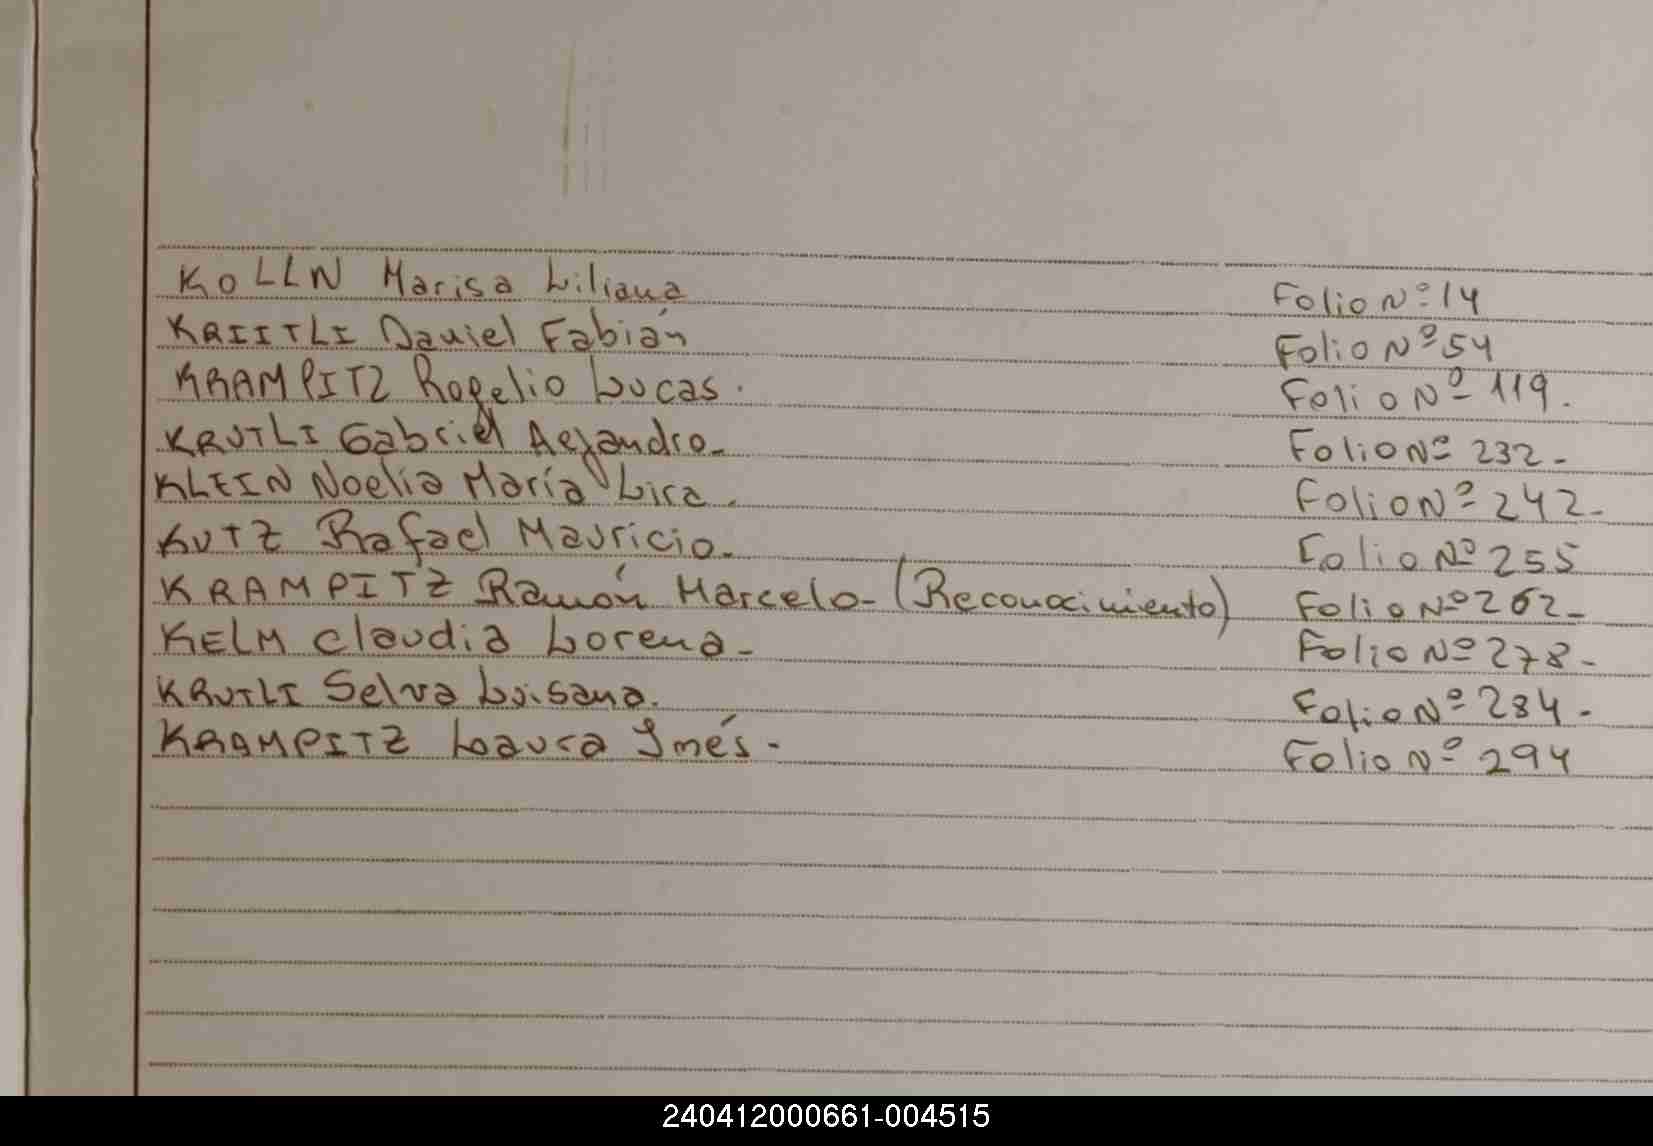 KOLLN Marisa Liliana Folio Nº 14
KRIITLI Daniel Fabián Folio Nº 54
KRAMPITZ Rogelio Lucas. Folio Nº 119.
KRUTLI Gabriel Aejandro. Folio Nº 232-
KLEIN Noelia María Lira. Folio Nº 242-
KUTZ Rafael Mauricio. Folio Nº 255
KRAMPITZ Ramón Marcelo- (Reconocimiento) Folio Nº 262-
KELM Claudia Lorena- Folio Nº 278-
KRUTLI Selva Luisana. Folio Nº 284-
KRAMPITZ Laura Inés- Folio Nº 294
240412000661-004515